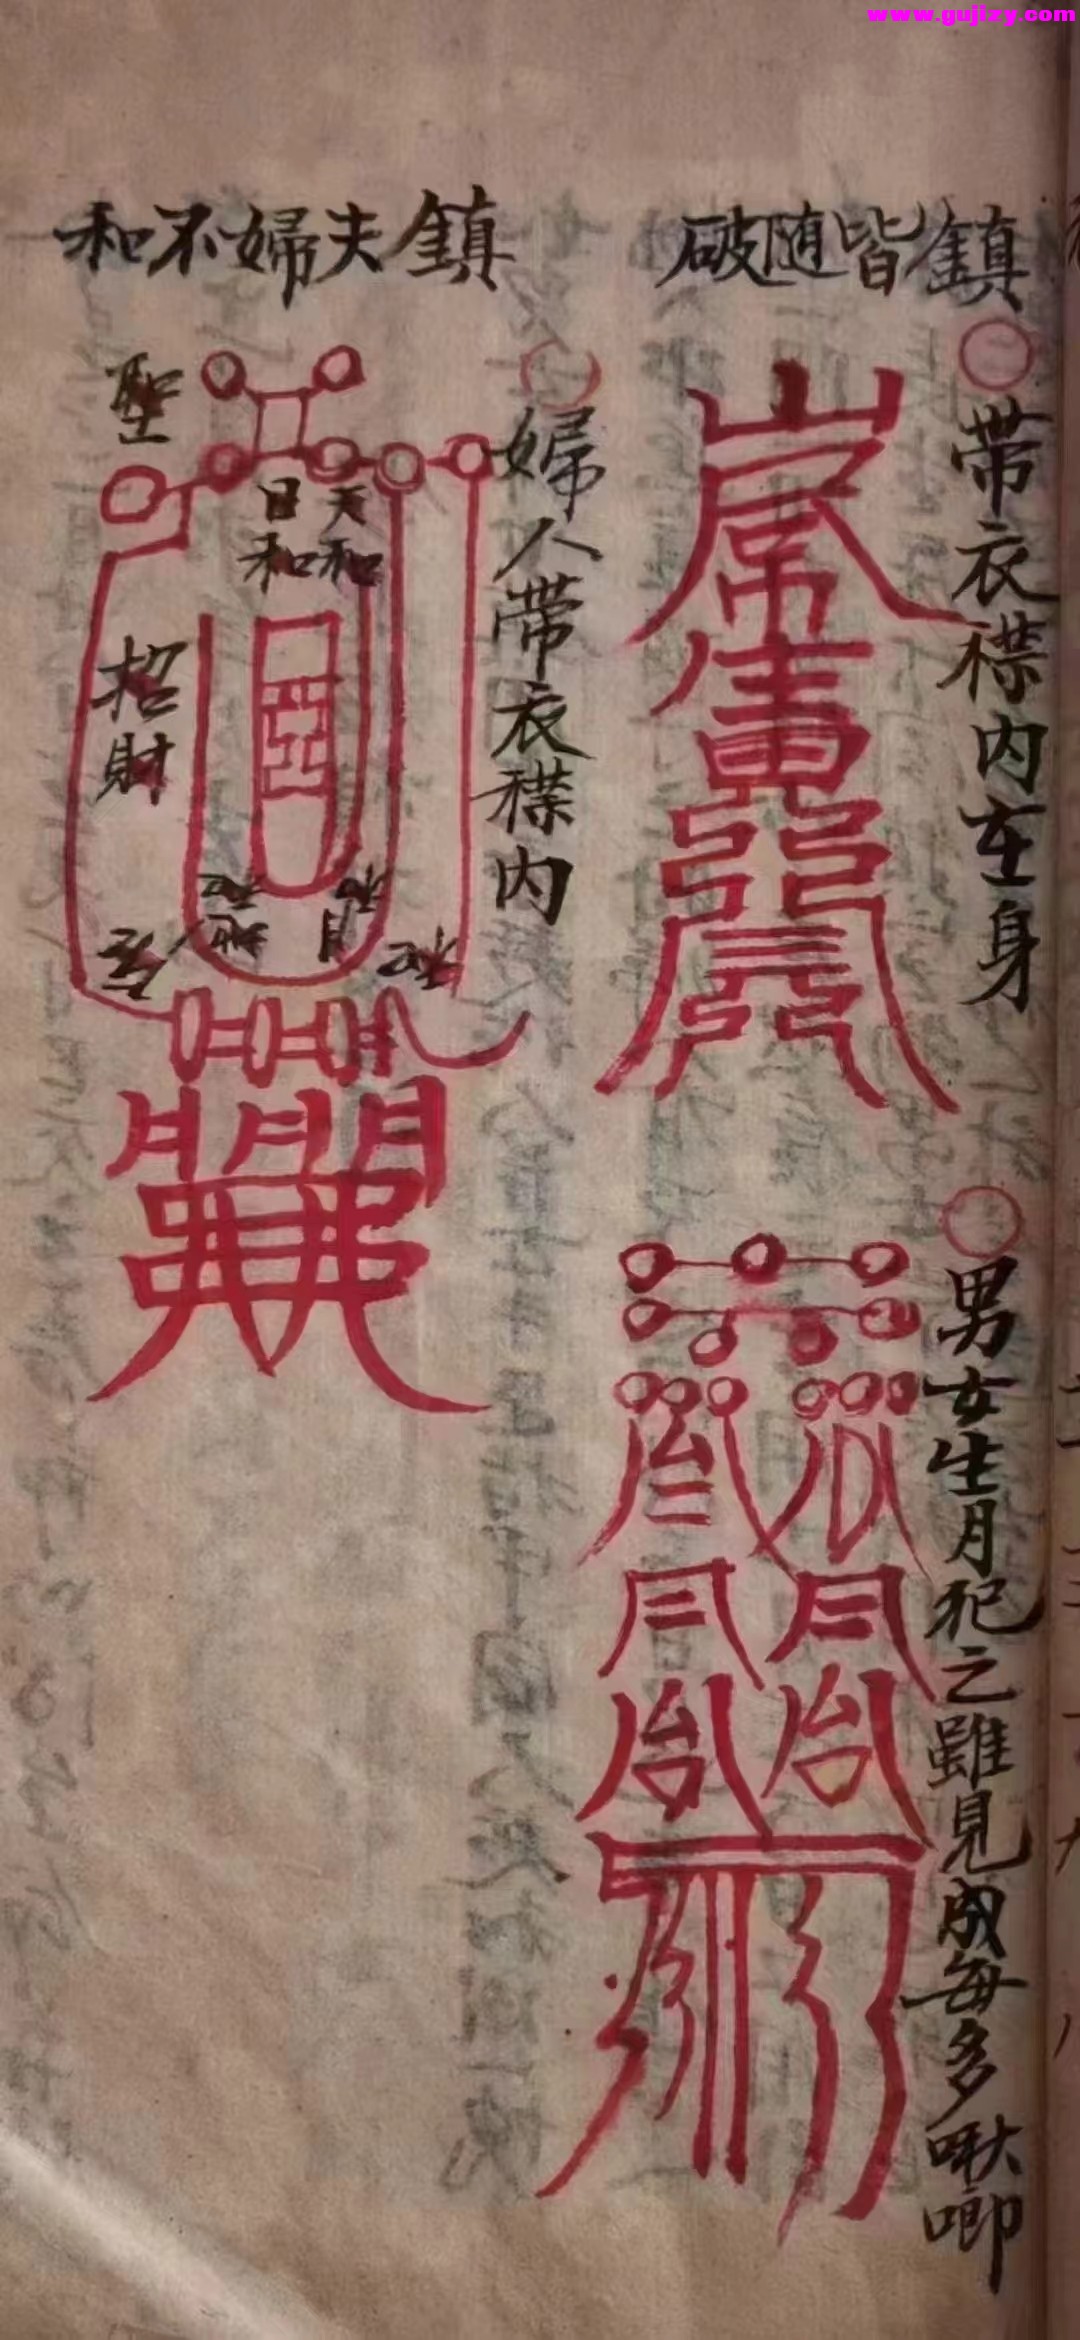 www.gujizy.com
鎮皆随破
帶衣襟内在身
男女生月犯之雖見成每多啾唧
鎮夫婦不和
婦人帶衣襟内
聖
天和
日和
招財